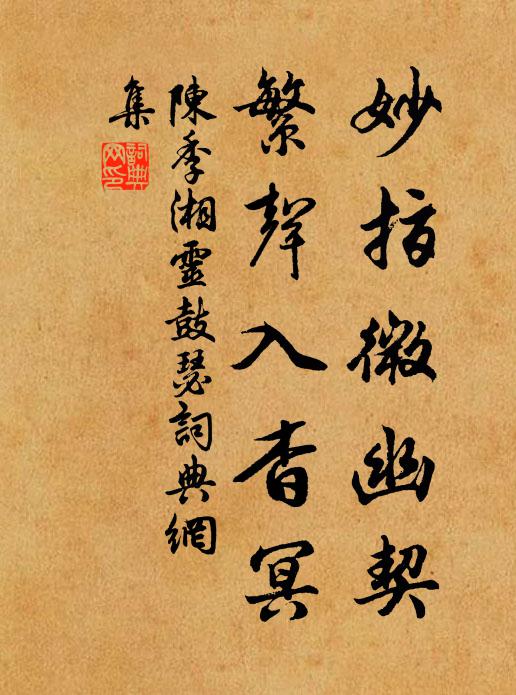 妙指微幽契
繁聲入杳冥
陳季湘靈鼓瑟詞典網
集
詞典
网印